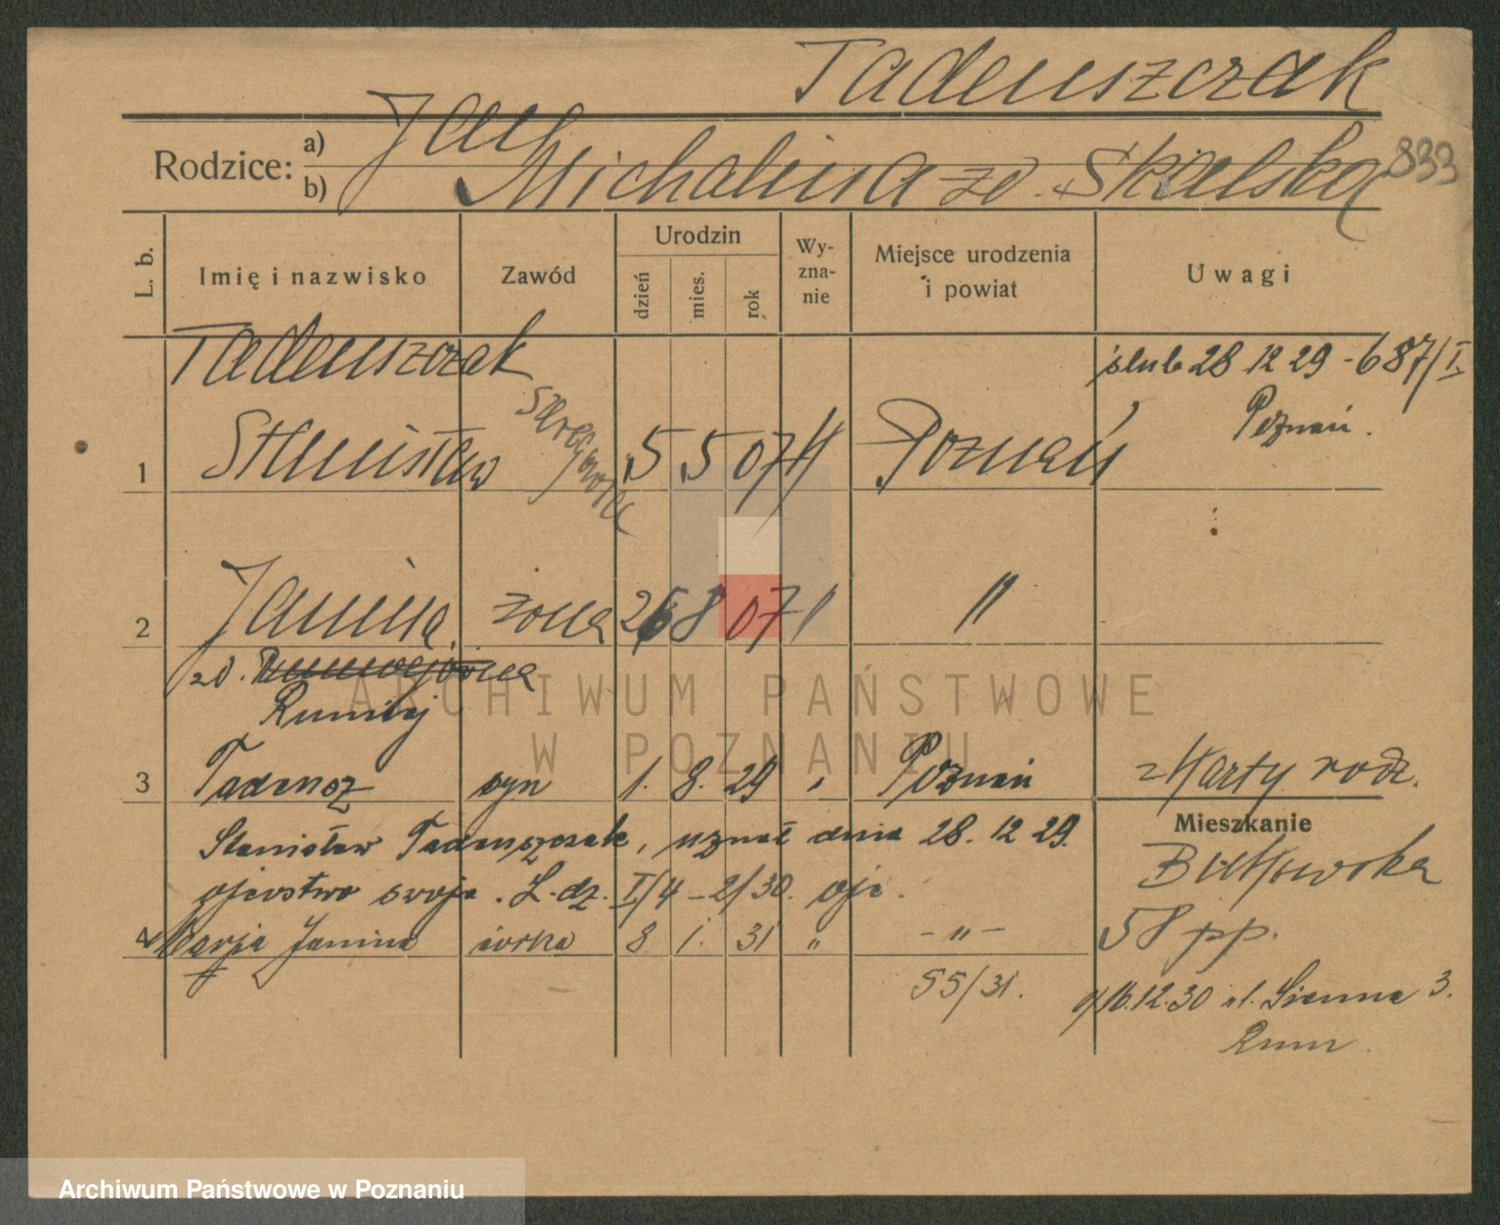 Tadeuszczak
Rodzice: a) Jan
b) Michalina zd. Skalska 833
L. b. Imię i nazwisko Zawód Urodzin dzień mies. rok Wy-zna-nie Miejsce urodzenia i powiat Uwagi
Tadeuszczak ślub 28 12 29 - 687/I
Poznań.
1 Stanisław 5 5 07 Poznań
2 Janina żona 26 8 07 "
zd.
Rumiej
3 Tadeusz syn 1. 8. 29 " Poznań z Karty rodz.
Stanisław Tadeuszczak, uznał dnia 28. 12 29.
Mieszkanie
ojcostwo swoje. L. dz. I/4 - 2/30. ojc.
Bukowska
4 Marja Janina córka 8 1. 31 " - " -
58 pp.
55/31.
16.12.30 ul. Sienna 3.
Rum
ARCHIWUM PAŃSTWOWE
W POZNANIU
Archiwum Państwowe w Poznaniu